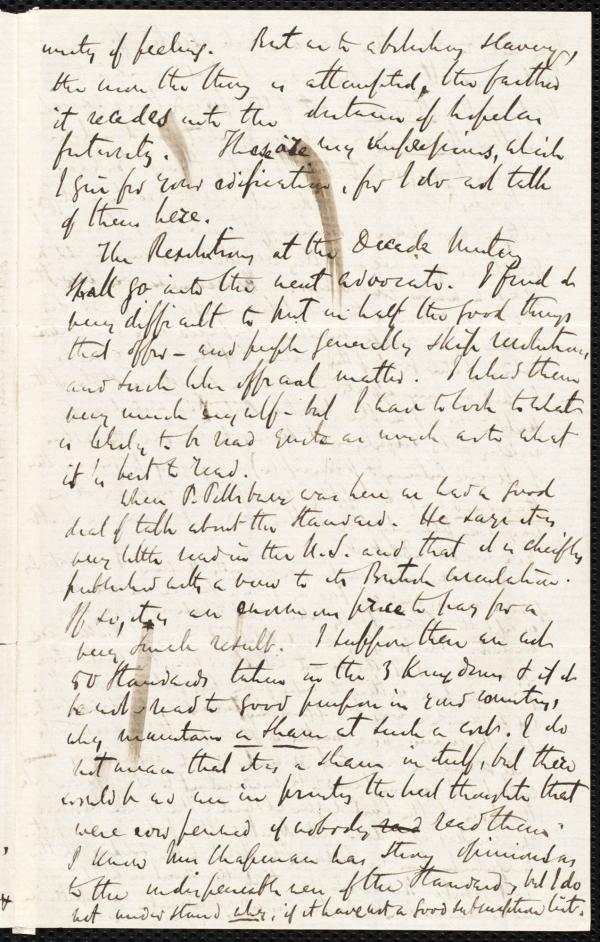 unity of feeling. But as to abolishing slavery,
the more the thing is attempted, the farther
it recedes into the distance of hopeless
futurity. These are my impressions, which
I give for your edification, for I do not talk
of them here.
The Resolutions at the Decade Meeting
shall go into the next advocate. I find it
very difficult to put in half the good things
that offer - and people generally skip resolutions
and such like official matter. I liked them
very much myself - but I have to look to what
is likely to be read quite as much as to what
it is best to read.
When P. Pillsbury was here we had a good
deal of talk about the Standard. He says it is
very little read in the U.S. and that it is chiefly
published with a view to its British circulation.
If so, it is an enormous price to pay for a
very small result. I suppose there are not
50 Standards taken in the 3 Kingdoms & if it
be not read to good purpose in your country,
why maintain a sham at such a cost. I do
not mean that it is a sham in itself, but there
would be no use in printing the best thoughts that
were ever penned if nobody read them.
I know Mrs Chapman has strong opinions as
to the indispensableness of the Standard, but I do
not understand why, if it have not a good subscription list.